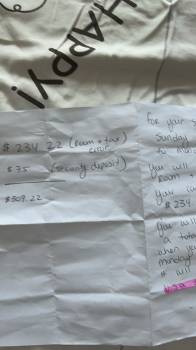 HAPPY!
$ 234.22 (room + tax)
$ 75 (security deposit)
$309.22
For your s
Sunday
to
You will
room +
Your
$ 234
You wi
a tota
when yo
Monday
it will